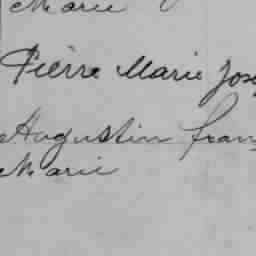 Marie
Pierre Marie Jose
Augustin Fran
Marie